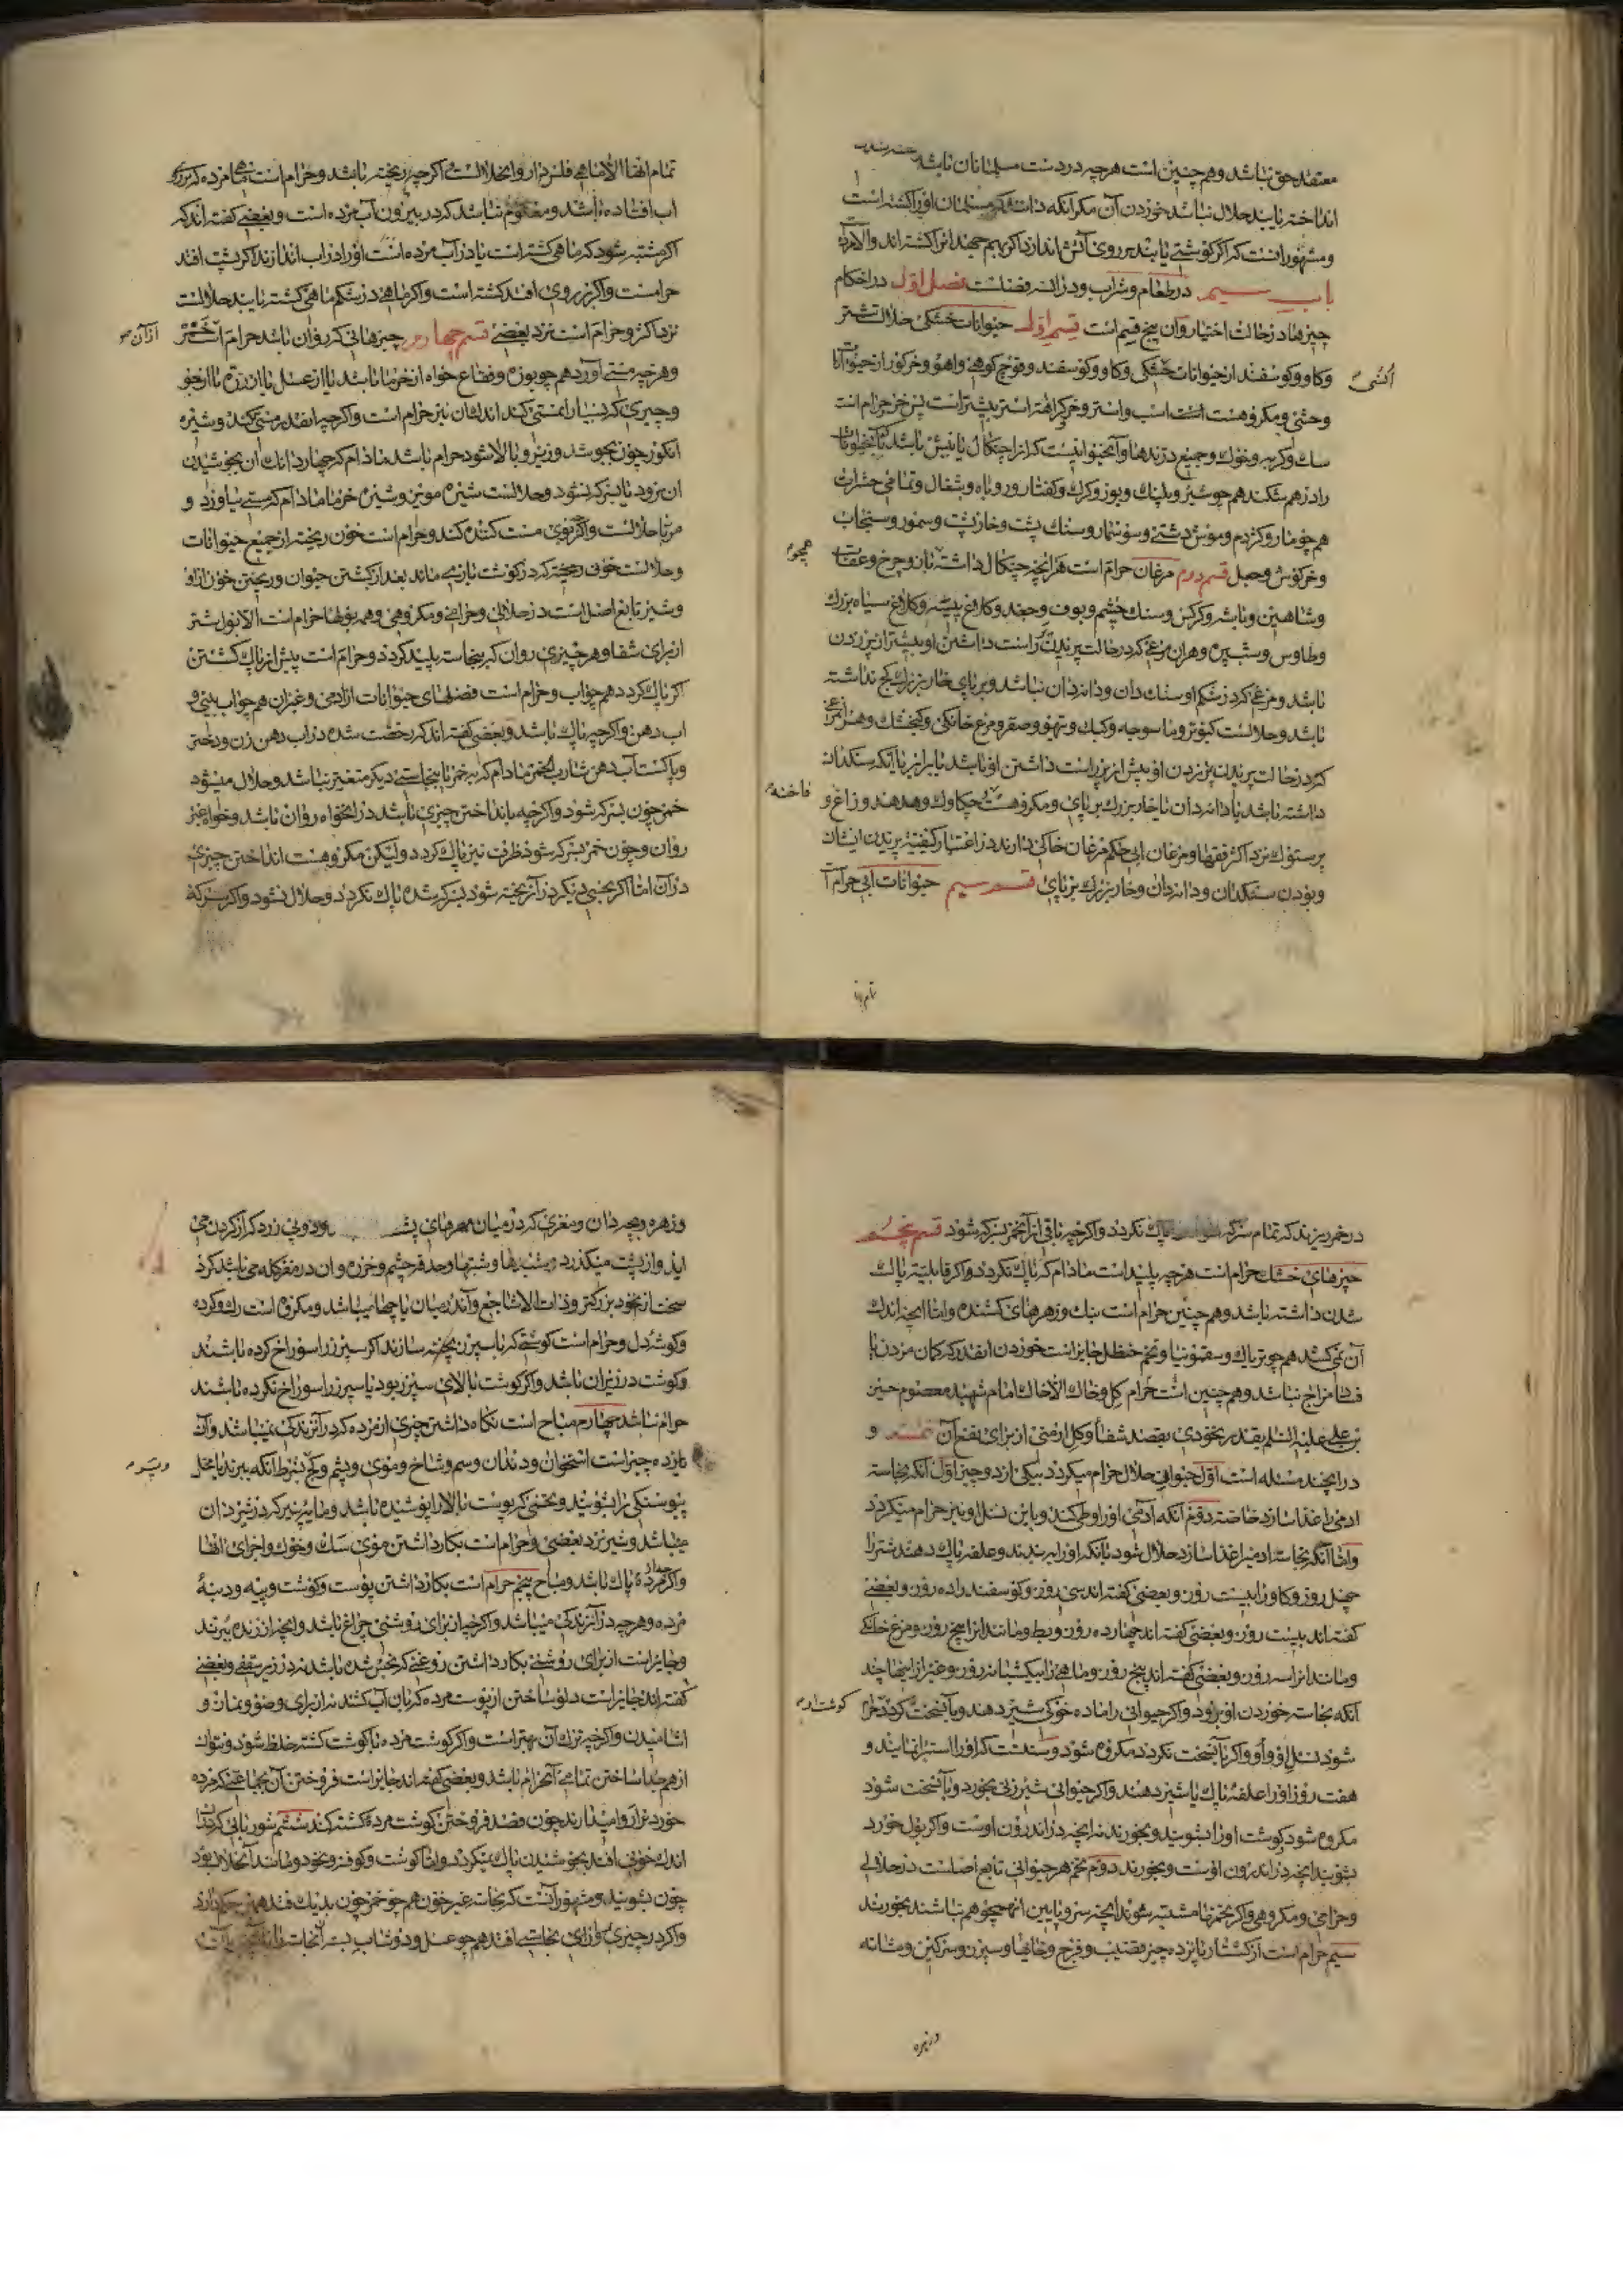 معتقد حق نباشد وهم چنین است هرچه در دست مسلمانان نباشد
انداخته یابند حلال نباشد خوردن آن مکر آنکه دانند که مسلمان اورا کشته است
ومشهور انست که اکر کوشتی یابند بر روی آتش اندازند اکر بهم جهد انرا کشته اند والا مرده
باب سیم در طعام وشراب ودران فصلست فصل اول در احکام
چیزها در حالت اختیار وآن پنج قسم است قسم اول حیوانات خشکی حلال است شتر
وکاو وکوسفند از حیوانات خشکی وکاو وکوسفند وقوچ کوهی واهو وخرکور از حیوانات
وحشی ومکروهست اسب واستر وخر کراهة استر بیشتر است پس خر حرام است
سک وکربه وخوک وجمیع درندها وآن حیوانیست که انرا چنکال یا نیش باشد که حیوانات
را درهم شکند هم چو شیر وپلنک ویوز وکرک وکفتار وروباه وشغال وتمامی حشرات
هم چو مار وکژدم وموش دشتی وسوسمار وسنک پشت وخارپشت وسمور وسنجاب
وخرکوش وجعل قسم دوم مرغان حرام است هرانچه چنکال داشته باشد وچرخ وعقاب
هچو
وشاهین وباشه وکرکس وسنک چشم وبوف وجغد وکلاغ پیسه وکلاغ سیاه بزرک
وطاوس وشب پره وهران مرغی که در حالت پریدن راست داشتن او بیشتر از پر زدن
باشد ومرغی که در شکم او سنک دان ودانه دان نباشد وبر پای خار بزرک کج نداشته
باشد وحلالست کبوتر وماسوجه وکبک وتیهو وصقر ومرغ خانکی وکنجشک وهر مرغ
که در حالت پریدن پر زدن او بیش از پر راست داشتن او باشد یا برابر یا آنکه سنکدان
داشته باشد یا دانه دان یا خار بزرک بر پای ومکروهست چکاوک وهدهد وزاغ و
فاخته
پرستوک نزد اکثر فقها ومرغان ابی حکم مرغان خاکی دارند در اعتبار کیفیة پریدن ایشان
وبودن سنکدان ودانه دان وخار بزرک بر پای قسم سیم حیوانات ابی حرام
تمام انها الا ماهی فلس دار وانحلالست اکرچه ریخته باشد وحرام است ماهی مرده که بر روی
اب افتاده باشد ومعلوم نباشد که در بیرون آب مرده است وبعضی کفته اند که
اکر مشتبه شود که ماهی کشته است یا در آب مرده است اورا در اب اندازند اکر بپشت افتد
حرامست واکر بر روی افتد کشته است واکر ماهی در شکم ماهی کشته یابند حلالست
نزد اکثر وحرام است نزد بعضی قسم چهارم چیزهائی که روان باشد حرام است خمر
از آن
وهرچه مستی آورد هم چو بوزه وفقاع خواه از خرما باشد یا از عسل یا از ذرة یا از جو
وچیزی که بسیار او مستی کند اندک آن نیز حرام است واکرچه انقدر مستی نکند وشیره
انکور چون بجوشد وزیر وبالا شود حرام باشد مادام که چهار دانک ان بجوشیدن
ان برود یا سرکه نشود وحلالست شیره مویز وشیره خرما مادام که مستی نیاورد و
مربا حلالست واکرچه بوی مست کننده کند وحرام است خون ریخته از جمیع حیوانات
وحلالست خون ریخته که در کوشت باز پس ماند بعد از کشتن حیوان وریختن خون از او
وشیر تابع اصل است در حلالی وحرامی ومکروهی وهمه بولها حرام است الا بول شتر
از برای شفا وهرچیزی روان که بنجاسة پلید کردد وحرام است پیش از پاک کشتن
اکر پاک کردد هم چو اب وحرام است فضلهای حیوانات از ادمی وغیران هم چو آب بینی و
اب دهن واکرچه پاک باشد وبعضی کفته اند که رخصت شده در اب دهن زن ودختر
وپاکست آب دهن شارب الخمر مادام که بخمر یا بنجاستی دیکر متغیر نباشد وحلال میشود
خمر چون سرکه شود واکرچه بانداختن چیزی باشد در ان خواه روان باشد وخواه غیر
روان وچون خمر سرکه شود ظرف نیز پاک کردد ولیکن مکروهست انداختن چیزی
در آن اما اکر نجسی دیکر در آن ریخته شود بسرکه شدن پاک نکردد وحلال نشود واکر سرکه
در خمر ریزند که تمام سرکه شود پاک نکردد واکرچه باقی از آن خمر سرکه شود قسم پنجم
چیزهای خشک حرام است هرچه پلید است مادام که پاک نکردد واکر قابلیة پاک
شدن داشته باشد وهم چنین حرام است بنک وزهرهای کشنده واما آنچه اندک
آن نمی کشد هم چو تریاک وسقمونیا وتخم حنظل جایز است خوردن انقدر که کمان مردن یا
فساد مزاج نباشد وهم چنین است حرام کل وخاک الا خاک امام شهید معصوم حسین
بن علی علیه السلم بقدر نخودی بقصد شفا وکل ارمنی از برای نفع آن تتمه و
در انچند مسئله است اول حیوانی حلال حرام میکردد بیکی از دو چیز اول آنکه نجاسة
ادمی را غذا سازد خاصة دوم آنکه آدمی اورا وطی کند وباین نسل او نیز حرام میکردد
واما آنکه نجاسة ادمی را غذا سازد حلال شود بآنکه اورا به بندند وعلفه پاک دهند شتر را
چهل روز وکاو را بیست روز وبعضی کفته اند سی روز وکوسفند را ده روز وبعضی
کفته اند بیست روز وبعضی کفته اند چهارده روز وبط ومانند انرا پنج روز ومرغ خانکی
ومانند انرا سه روز وبعضی کفته اند پنج روز وماهی را یکشبانه روز وغیر از اینها چند
آنکه نجاسة خوردن او برود واکر حیوانی را ماده خوکی شیر دهد وبآن سخت کردد حرام
کوشت او
شود نسل او واو واکر بآن سخت نکردد مکروه شود وسنتست که اورا استبرا نمایند و
هفت روز اورا علفه پاک یا شیر دهند واکر حیوانی شیر زنی بخورد وبآن سخت شود
مکروه شود کوشت اورا بشویند وبخورند نه انچه در اندرون اوست واکر بول خورد
بشویند انچه در اندرون اوست وبخورند دوم تخم هر حیوانی تابع اصلست در حلالی
وحرامی ومکروهی واکر تخمها مشتبه شوند انچه سر وپایین انها همچو هم نباشند بخورند
سیم حرام است از کشتار پانزده چیز قضیب وفرج وخایها وسپرز وسرکین ومثانه
وزهره وبچه دان ومغزی که در میان مهرهای پشت بود وپی زرد که از کردن می
اید واز پشت میکذرد وحدقه چشم وخرزه وان در مغز کله می باشد کرد
سخت از نخود بزرکتر وذات الاشاجع وآن در میان پاچها میباشد ومکروه است رک وکرده
وکوشه دل وحرام است کوشتی که با سپرز پخته سازند اکر سپرز را سوراخ کرده باشند
وکوشت در زیر ان باشد واکر کوشت بالای سپرز بود یا سپرز را سوراخ نکرده باشند
حرام نباشد چهارم مباح است نکاه داشتن چیزی از مرده که در آن زندکی نمیباشد وآن
یازده چیز است استخوان ودندان وسم وشاخ وموی وپشم وکرک بشرط آنکه ببرند یا محل
پیوستکی را بشویند وتخمی که پوست بالا را پوشیده باشد ومایه پنیر که در شیردان
میباشد وشیر نزد بعضی وحرام است بکار داشتن موی سک وخوک واجزای انها
واکرچه پاک باشد ومباح پنجم حرام است بکار داشتن پوست وکوشت وپیه ودنبه
مرده وهرچه در آن زندکی میباشد واکرچه از برای روشنی چراغ باشد وانچه از زنده ببرند
وجایز است از برای روشنی بکار داشتن روغنی که نجس شده باشد نه در زیر سقفی وبعضی
کفته اند جایز است دلو ساختن از پوست مرده که بان آب کشند نه از برای وضو ونماز و
اشامیدن واکرچه ترک آن بهتر است واکر کوشت مرده با کوشت کشته خلط شود ونتوان
از هم جدا ساختن تمامی آن حرام باشد وبعضی کفته اند جایز است فروختن آن بجماعتی که مرده
خوردن را روا میدارند چون قصد فروختن کوشت مرده کشته کند ششم شوربائی که در ان
اندک خونی افتد بجوشیدن پاک میکردد واما کوشت وکوفته ونخود ومانند آن حلال بود
چون بشویند ومشهور آنست که نجاسة غیر خون هم چو خمر چون بدیک فتد همین حکم دارد
واکر در چیزی نجاستی افتد هم چو عسل ودوشاب بسته آن نجاست